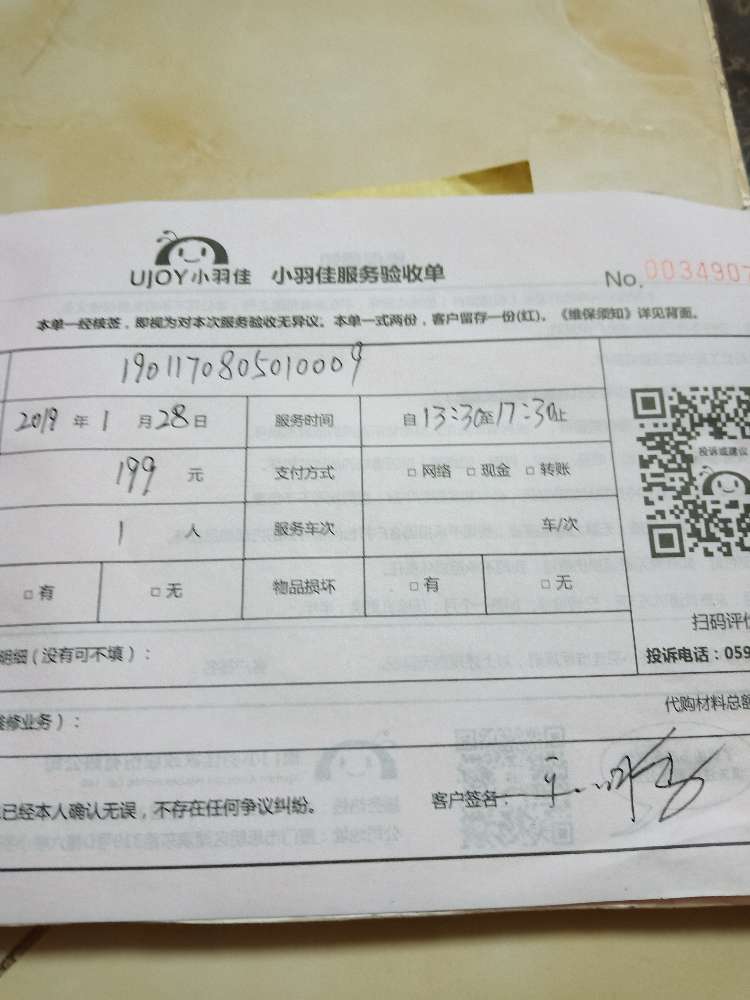 UJOY小羽佳 小羽佳服务验收单 No. 0034907
本单一经核签，即视为对本次服务验收无异议。本单一式两份，客户留存一份(红)。《维保须知》详见背面。
1901170805010009
2019 年 1 月 28 日 服务时间 自 13:30 至 17:30 止
199 元 支付方式 □ 网络 □ 现金 □ 转账
投诉或建议
1 人 服务车次 车/次
□ 有 □ 无 物品损坏 □ 有 □ 无
扫码评价
明细（没有可不填）：
投诉电话：059
维修业务）：
代购材料总额
已经本人确认无误，不存在任何争议纠纷。 客户签名：